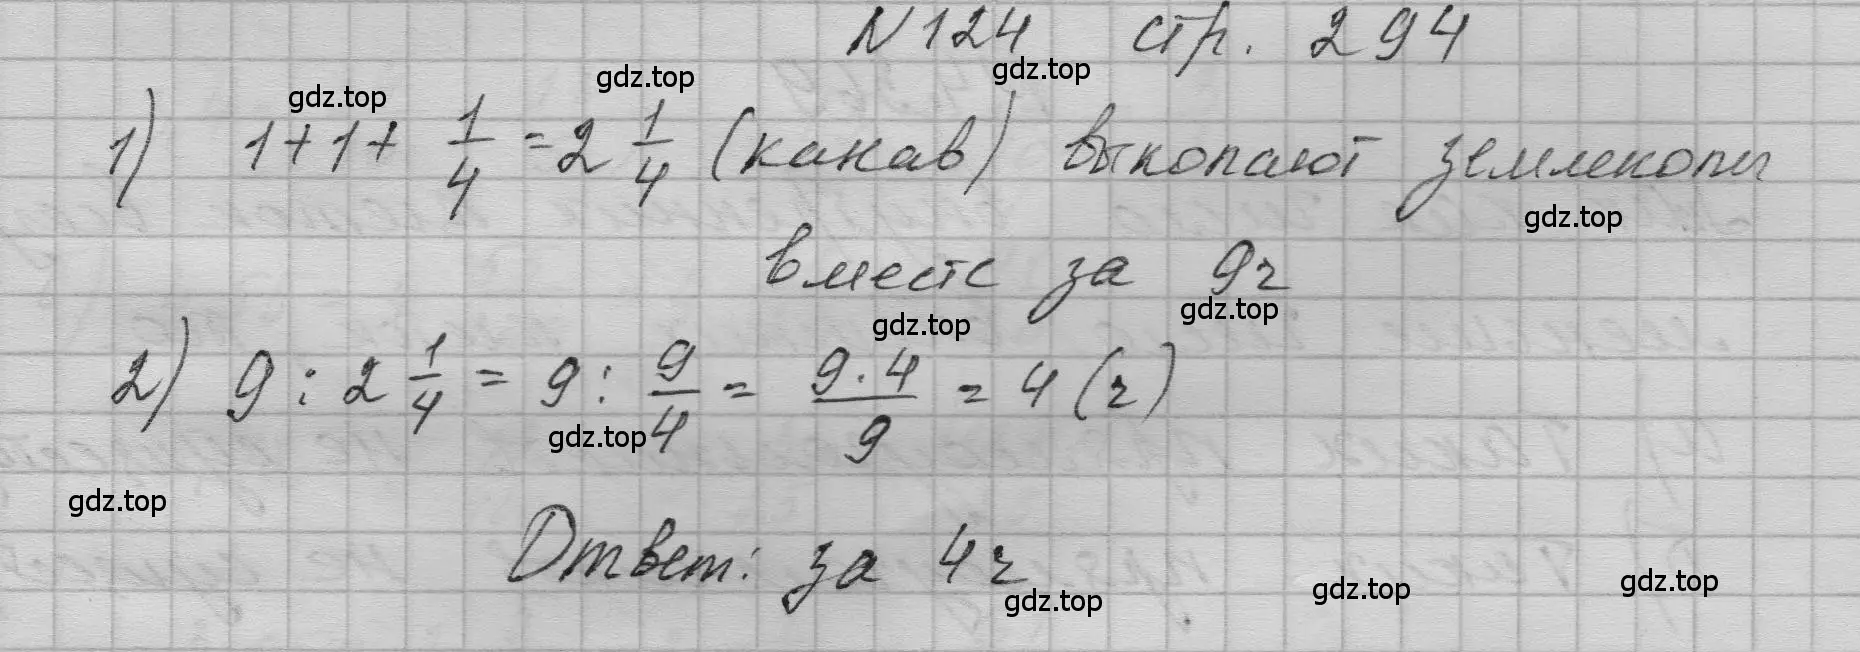 N 124 стр. 294
1) 1 + 1 + 1/4 = 2 1/4 (канав) выкопают землекопы
вместе за 9ч
2) 9 : 2 1/4 = 9 : 9/4 = 9·4/9 = 4 (ч)
Ответ: за 4ч
gdz.top
gdz.top
gdz.top
gdz.top
gdz.top
gdz.top
gdz.top
gdz.top
gdz.top
gdz.top
gdz.top